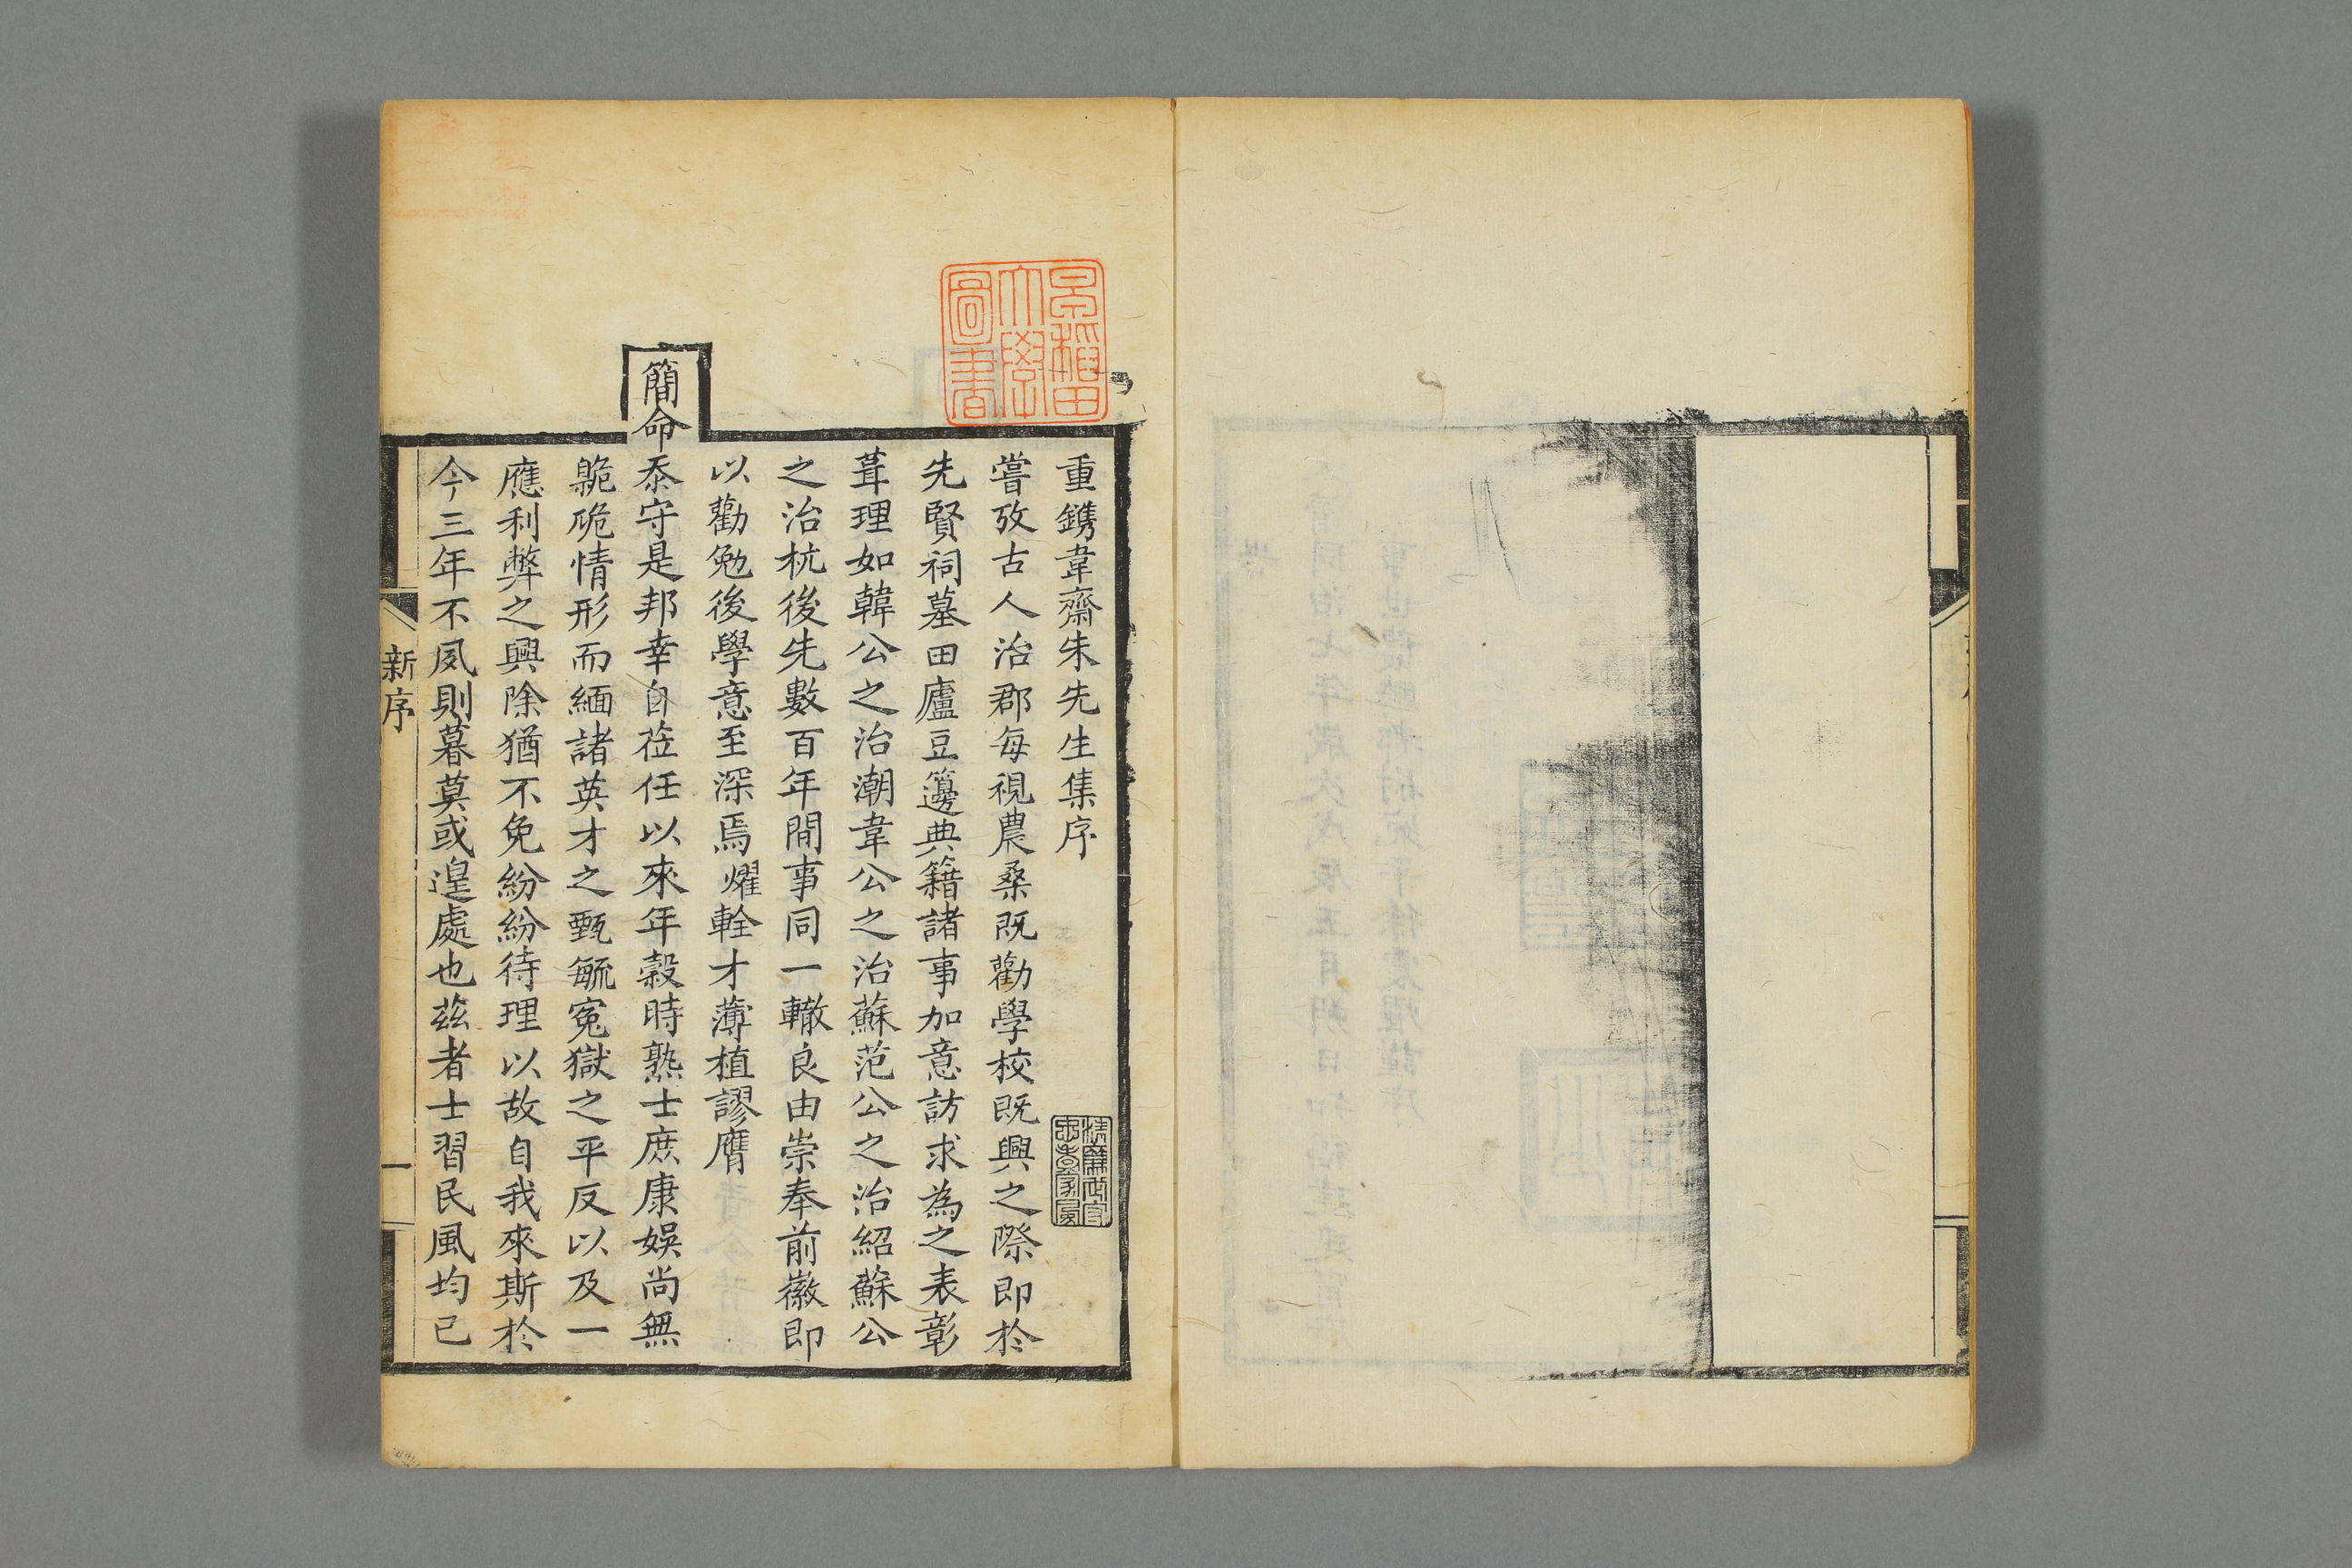 早稲田大學圖書
重鐫韋齋朱先生集序
嘗攷古人治郡每視農桑既勸學校既興之際即於
先賢祠墓田廬豆籩典籍諸事加意訪求為之表彰
葺理如韓公之治潮韋公之治蘇范公之治紹蘇公
之治杭後先數百年間事同一轍良由崇奉前徽即
以勸勉後學意至深焉燿輇才薄植謬膺
簡命忝守是邦幸自莅任以來年穀時熟士庶康娛尚無
鼿硊情形而緬諸英才之甄毓寃獄之平反以及一
應利弊之興除猶不免紛紛待理以故自我來斯於
今三年不夙則暮莫或遑處也茲者士習民風均已
新序
一